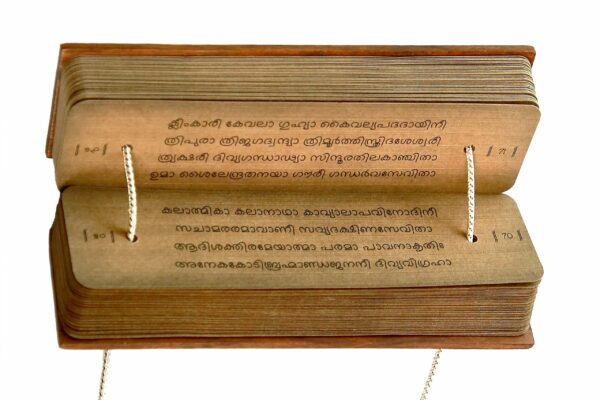 ക്ലീംകാരീ കേവലാ ഗുഹ്യാ കൈവല്യപദദായിനീ
ത്രിപുരാ ത്രിജഗദ്വന്ദ്യാ ത്രിമൂർത്തിസ്ത്രിദശേശ്വരീ
ത്ര്യക്ഷരീ ദിവ്യഗന്ധാഢ്യാ സിന്ദൂരതിലകാഞ്ചിതാ
ഉമാ ശൈലേന്ദ്രതനയാ ഗൗരീ ഗന്ധർവസേവിതാ
71
കലാത്മികാ കലാനാഥാ കാവ്യാലാപവിനോദിനീ
സചാമരരമാവാണീ സവ്യദക്ഷിണസേവിതാ
ആദിശക്തിരമേയാത്മാ പരമാ പാവനാകൃതിഃ
അനേകകോടിബ്രഹ്മാണ്ഡജനനീ ദിവ്യവിഗ്രഹാ
70